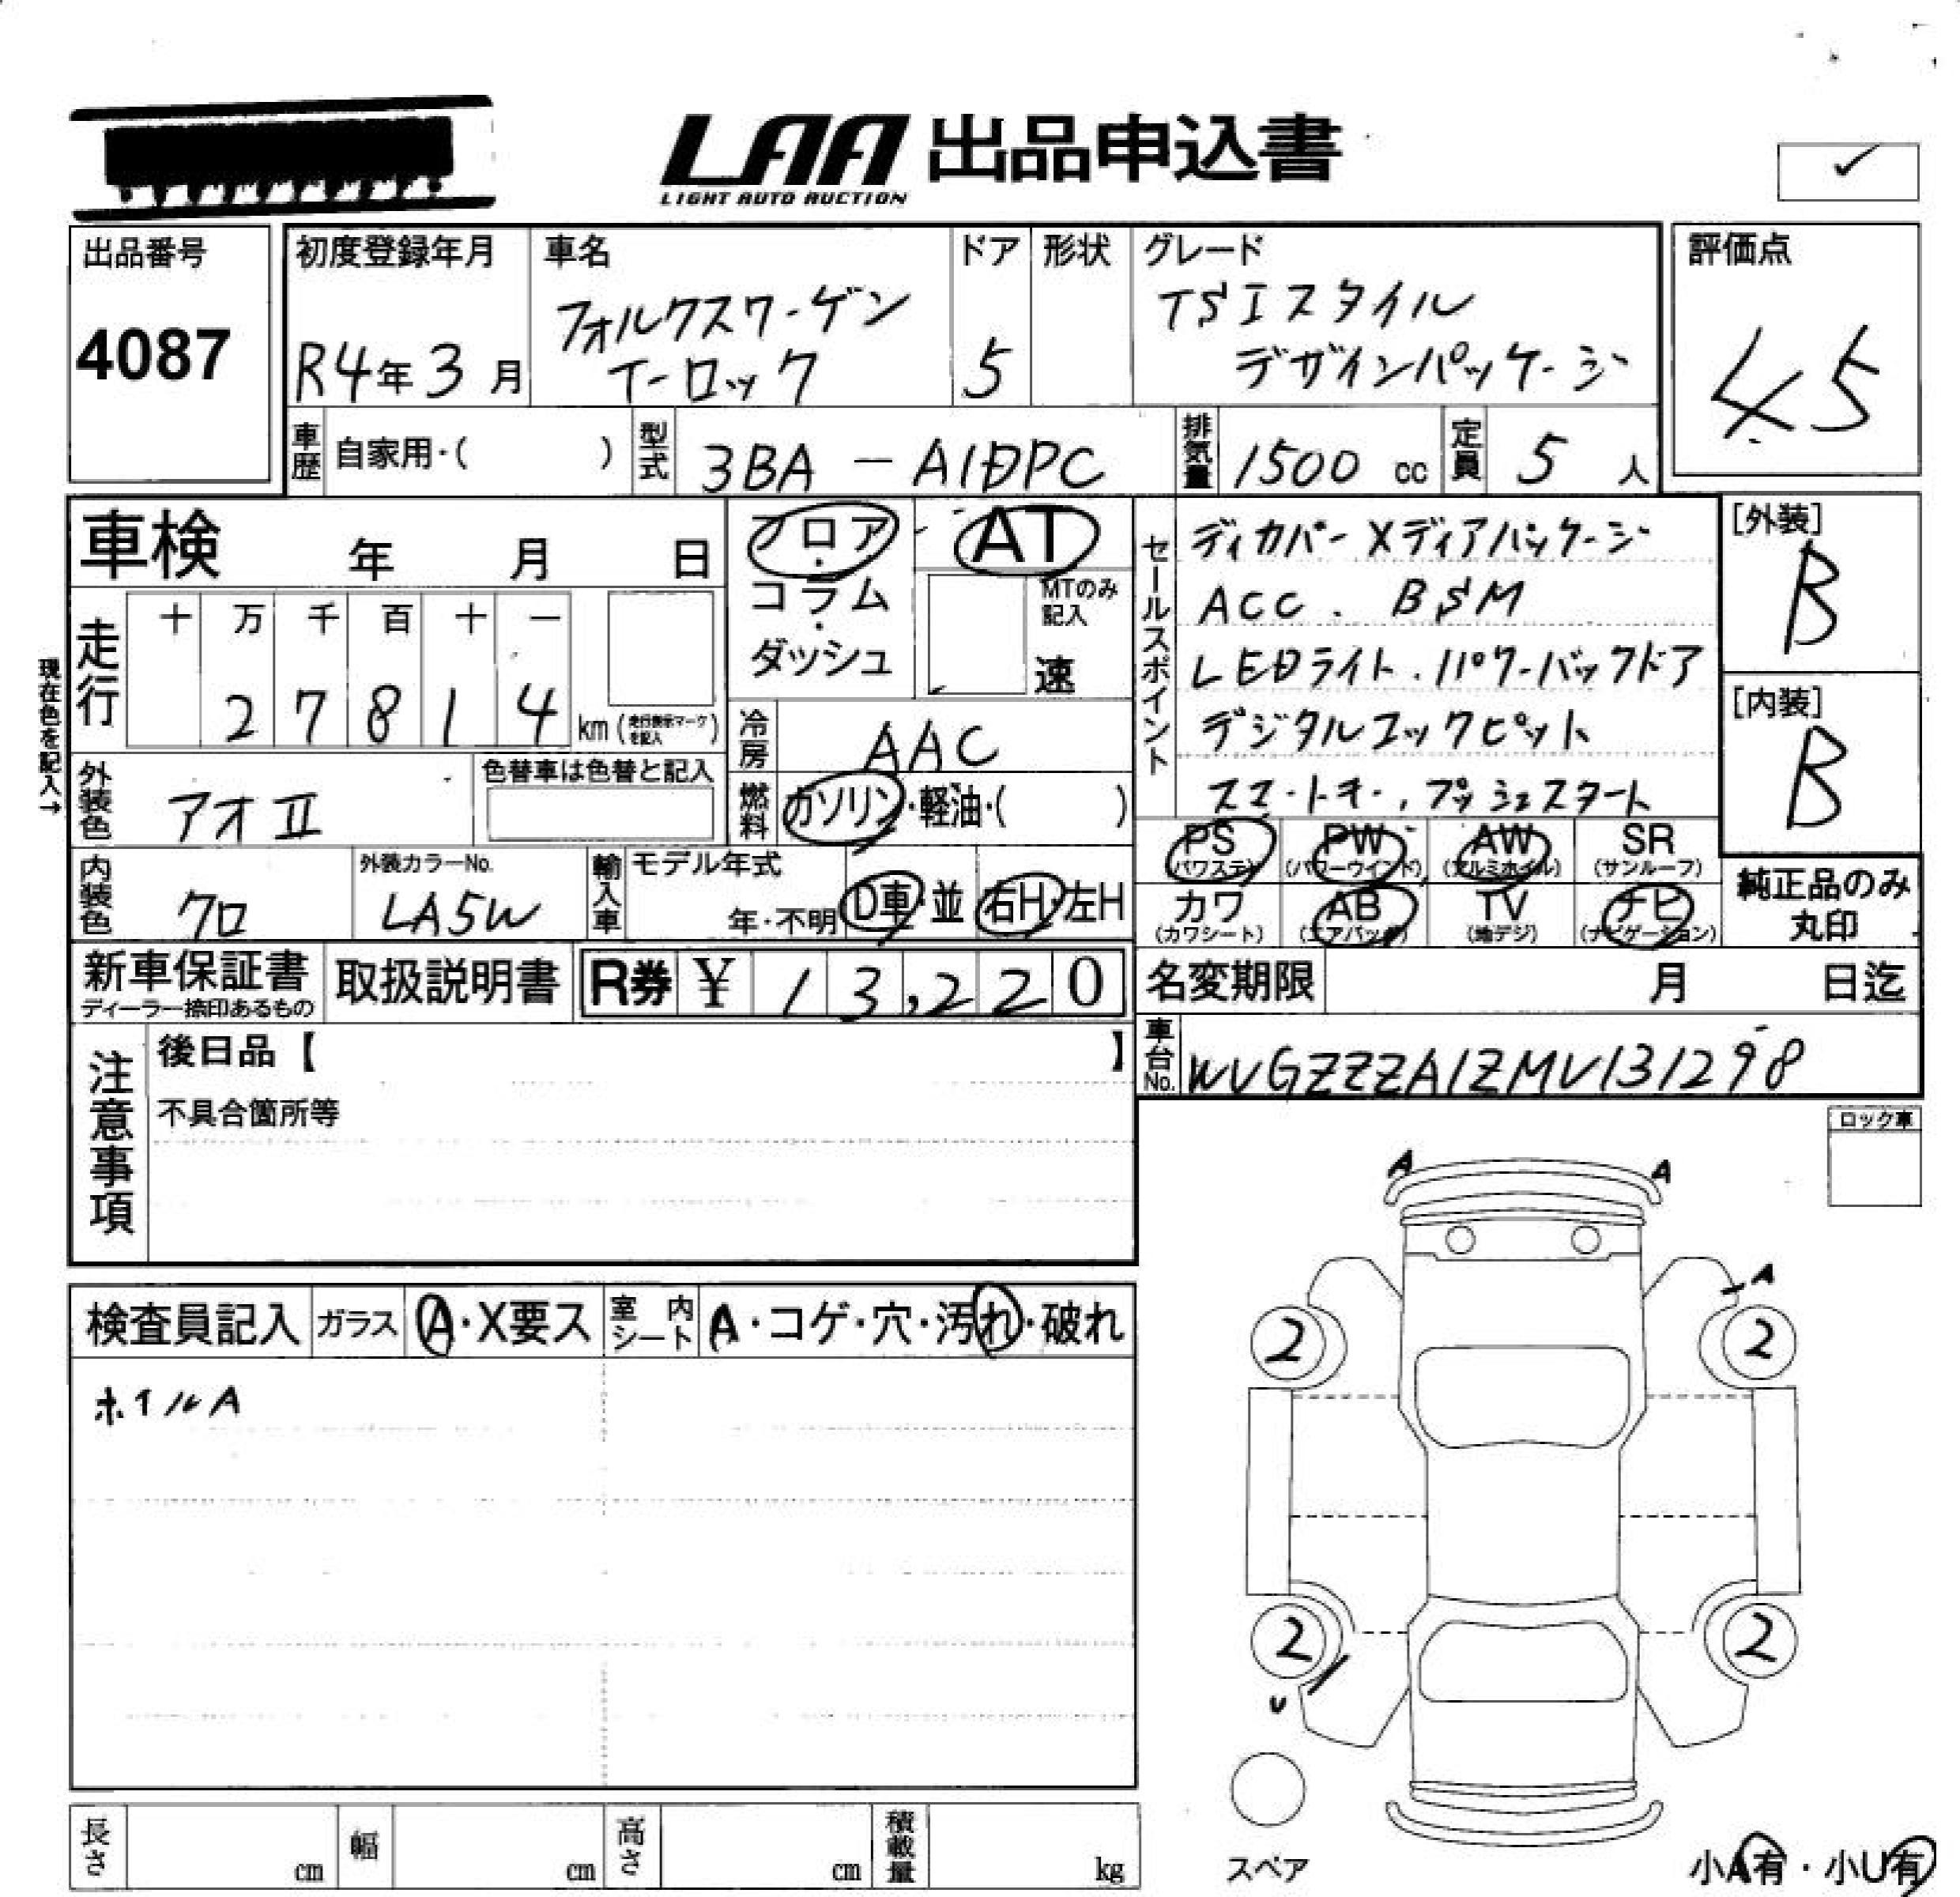 LAA 出品申込書
LIGHT AUTO AUCTION
出品番号
4087
初度登録年月
R4年3月
車名
フォルクスワーゲン
T-ロック
ドア
5
形状
グレード
TSIスタイル
デザインパッケージ
評価点
4.5
車歴 自家用・( )
型式 3BA - A1DPC
排気量 1500 cc
定員 5 人
車検 年 月 日
フロア・コラム・ダッシュ
AT
MTのみ記入
速
現在色を記入→
走行
十 万 千 百 十 一
2 7 8 1 4 km (走行表示マークを記入)
冷房 AAC
外装色 アオⅡ
色替車は色替と記入
燃料 ガソリン・軽油・( )
内装色 クロ
外装カラーNo.
LA5W
輸入車 モデル年式
年・不明 D車・並 右H・左H
セールスポイント
ディカバーメディアパッケージ
ACC. BSM
LEDライト.パワーバックドア
デジタルコックピット
スマートキー, プッシュスタート
[外装]
B
[内装]
B
PS (パワステ) PW (パワーウインド) AW (アルミホイル) SR (サンルーフ)
カワ (カワシート) AB (エアバッグ) TV (地デジ) ナビ (ナビゲーション)
純正品のみ丸印
新車保証書
ディーラー捺印あるもの
取扱説明書
R券 ¥ 13,220
名変期限 月 日迄
車台No. WVGZZZA1ZMV131298
注意事項
後日品【 】
不具合箇所等
ロック車
検査員記入 ガラス A・X要ス 室内シート A・コゲ・穴・汚れ・破れ
ホイルA
A A
A
2 2
2 2
U
スペア
小A有・小U有
長さ cm 幅 cm 高さ cm 積載量 kg